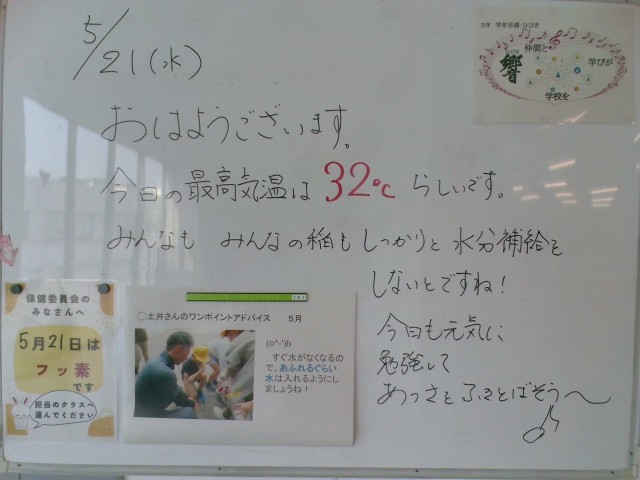 5/21(水)
おはようございます。
今日の最高気温は32℃らしいです。
みんなも みんなの稲もしっかりと水分補給を
しないとですね!
今日も元気に
勉強して
あつさをふきとばそう〜♪
5年 学年目標・ひびき
仲間と
響
学びが
学校を
保健委員会の
みなさんへ
5月21日は
フッ素
です
担当のクラスへ
運んでください
○土井さんのワンポイントアドバイス 5月
(o^-')b
すぐ水がなくなるの
で、あふれるぐらい
水は入れるようにし
ましょうね!